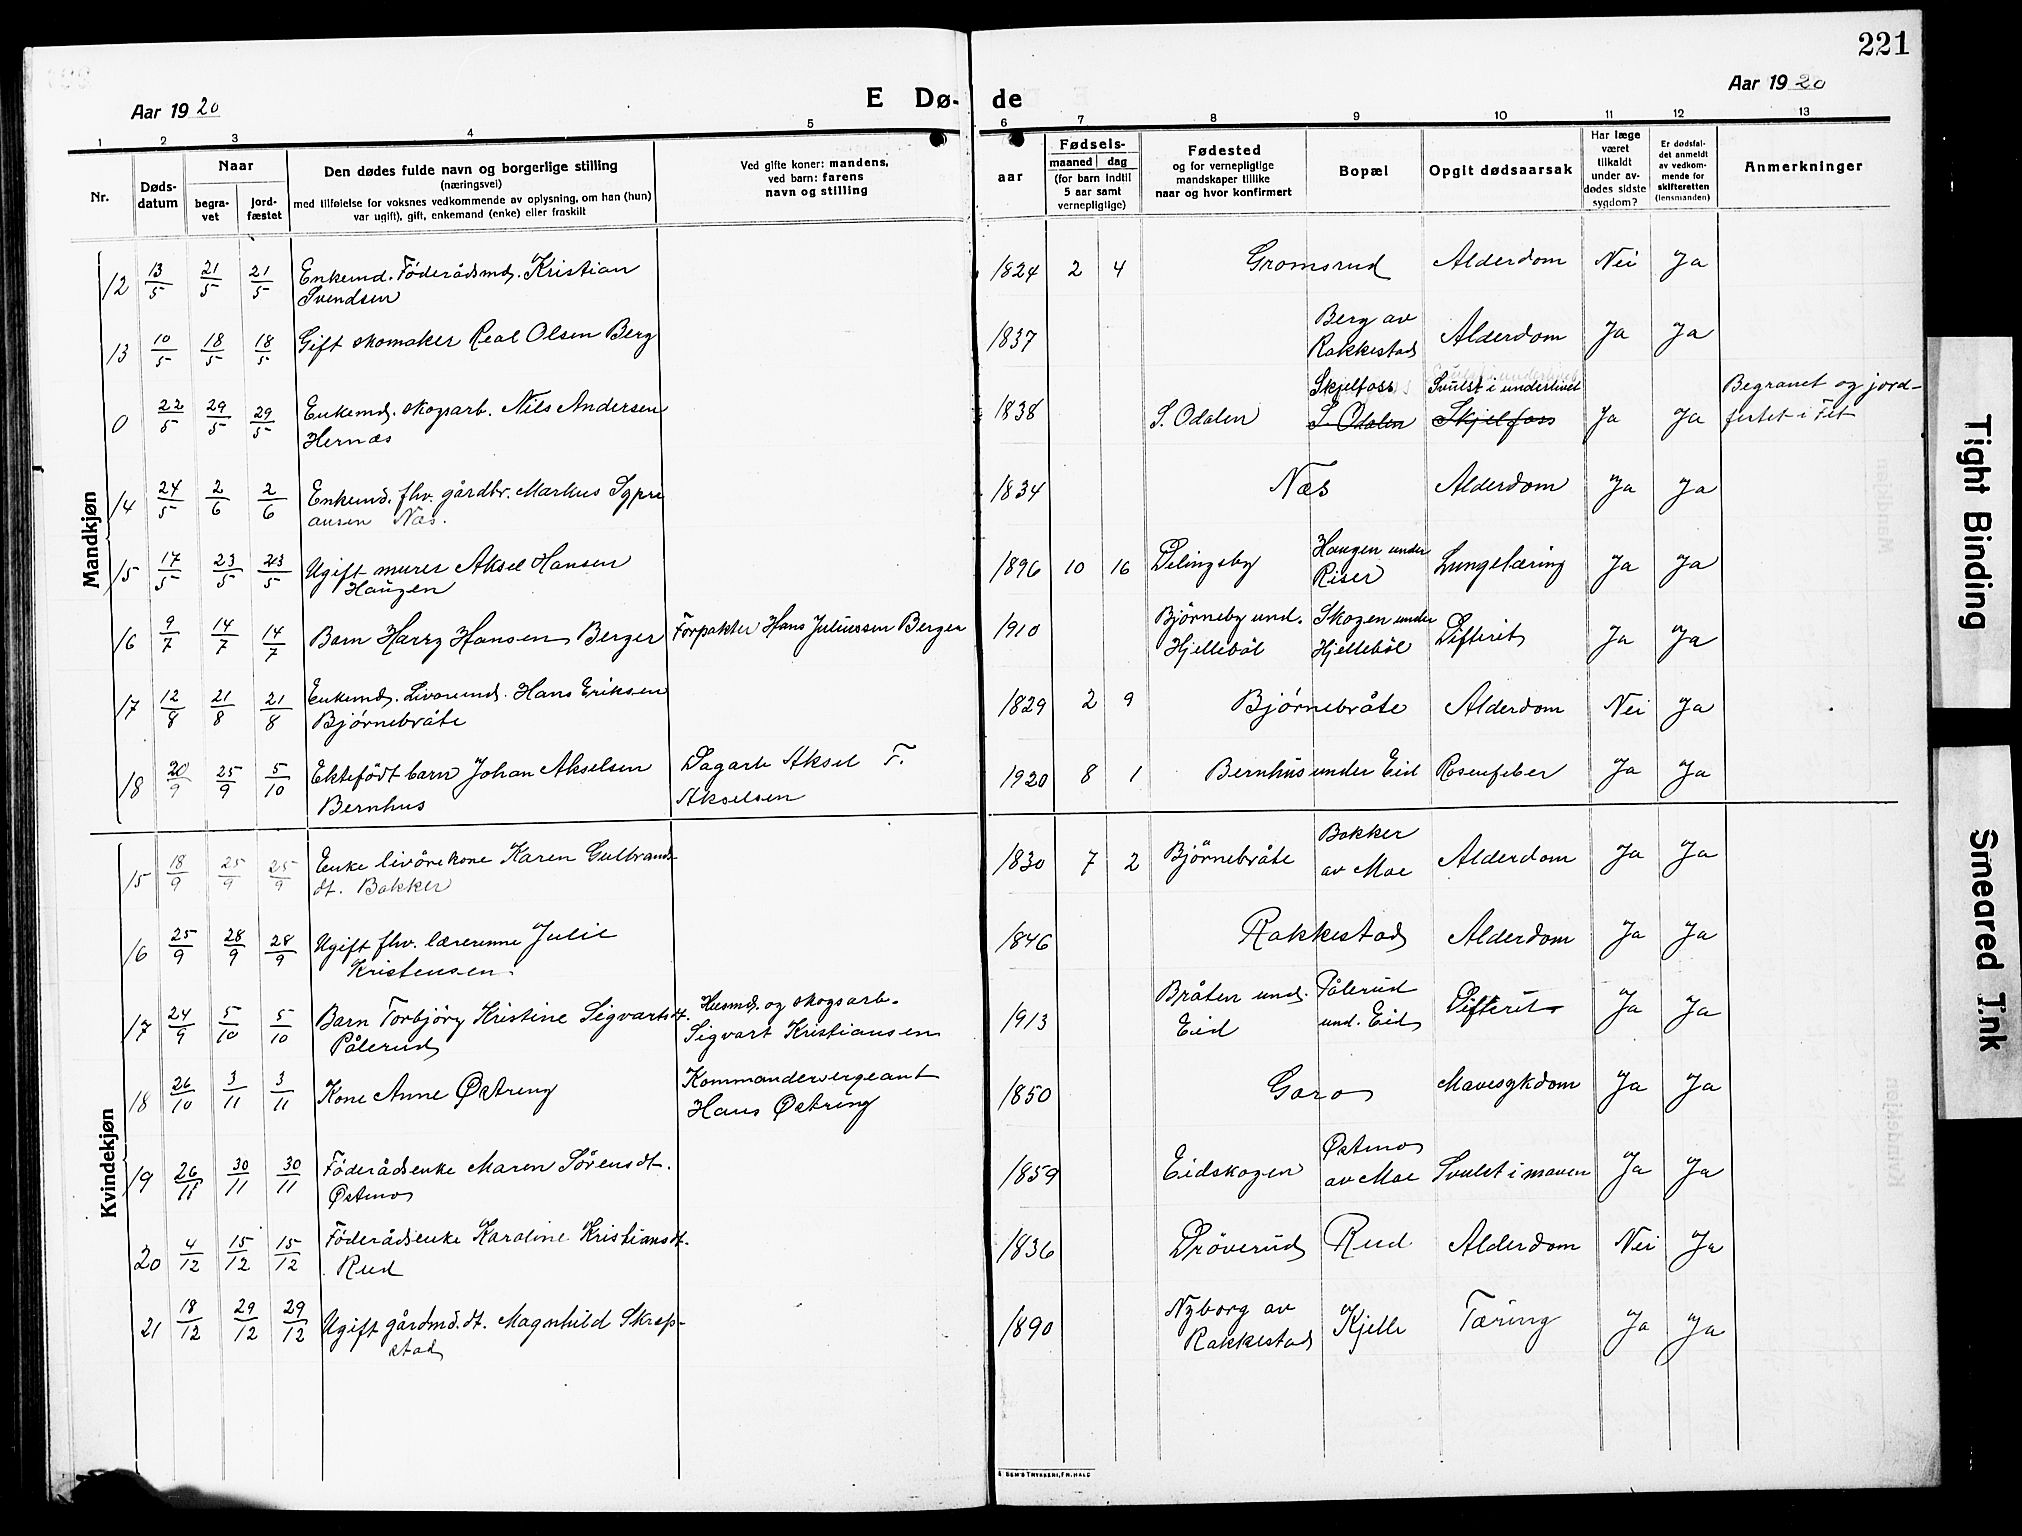 221
Aar 1920
E Dø-
de
Aar 1920
1 2 3 4 5 6 7 8 9 10 11 12 13
Nr.
Døds-
datum
Naar
begra-
vet
jord-
fæstet
Den dødes fulde navn og borgerlige stilling
(næringsvei)
med tilføielse for voksnes vedkommende av oplysning, om han (hun)
var ugift), gift, enkemand (enke) eller fraskilt
Ved gifte koner: mandens,
ved barn: farens
navn og stilling
Fødsels-
aar
maaned dag
(for barn indtil
5 aar samt
vernepligtige)
Fødested
og for vernepligtige
mandskaper tillike
naar og hvor konfirmert
Bopæl
Opgit dødsaarsak
Har læge
været
tilkaldt
under av-
dødes sidste
sygdom?
Er dødsfal-
det anmeldt
av vedkom-
mende for
skifteretten
(lensmanden)
Anmerkninger
Mandkjøn
12 13/5 21/5 21/5 Enkemd. Föderådsmd. Kristian
Svendsen
1824 2 4 Gromsrud Alderdom Nei Ja
13 10/5 18/5 18/5 Gift skomaker Real Olsen Berg
1837 Berg av
Rakkestad Alderdom Ja Ja
0 22/5 29/5 29/5 Enkemd. skogsarb. Nils Andersen
Hernæs
1838 S. Odalen Skjelfoss
S. Odalen
Svulst i underlivet
Skjelfoss
Ja Ja Begravet og jord-
festet i Fet
14 24/5 2/6 2/6 Enkemd. fhv. gårdbr. Markus Sypri
ansen Næs.
1834 Næs Alderdom Ja Ja
15 17/5 23/5 23/5 Ugift murer Aksel Hansen
Haugen
1896 10 16 Delingsby Haugen under
Riser Lungetæring Ja Ja
16 9/7 14/7 14/7 Barn Harry Hansen Berger Forpakter Hans Juliussen Berger
1910 Bjørneby und.
Hjellebøl Skogen under
Hjellebøl Difterit Ja Ja
17 12/8 21/8 21/8 Enkemd. Livørmd. Hans Eriksen
Bjørnebråte
1829 2 9 Bjørnebråte Alderdom Nei Ja
18 20/9 25/9 5/10 Ektefödt barn Johan Akselsen
Bernhus
Dagarb Aksel F.
Akselsen
1920 8 1 Bernhus under Eid Rosenfeber Ja Ja
Kvindekjøn
15 18/9 25/9 25/9 Enke livörekone Karen Gulbrands-
dt. Bakker
1830 7 2 Björnebråte Bakker
av Moe Alderdom Ja Ja
16 25/9 28/9 28/9 Ugift fhv. lærerinne Julie
Kristensen.
1846 Rakkestad Alderdom Ja Ja
17 24/9 5/10 5/10 Barn Torbjörg Kristine Sigvartsdt.
Pålerud
Husmd. og skogsarb.
Sigvart Kristiansen
1913 Bråten und.
Eid Pålerud
und. Eid Difterit Ja Ja
18 26/10 3/11 3/11 Kone Anne Østreng
Kommandersergeant
Hans Østreng
1850 Mavesykdom Ja Ja
19 26/11 30/11 30/11 Föderådsenke Maren Sørensdt.
Østmo
1859 Eidskogen Østmo
av Moe Svulst i maven Ja Ja
20 4/12 15/12 15/12 Föderådsenke Karoline Kristiansdt.
Rud
1836 Dröverud Rud Alderdom Nei Ja
21 18/12 29/12 29/12 Ugift gårdmd. dt. Magnhild Skrep-
stad
1890 Nyborg av
Rakkestad Kjelle Tæring Ja Ja
Tight Binding
Smeared Ink